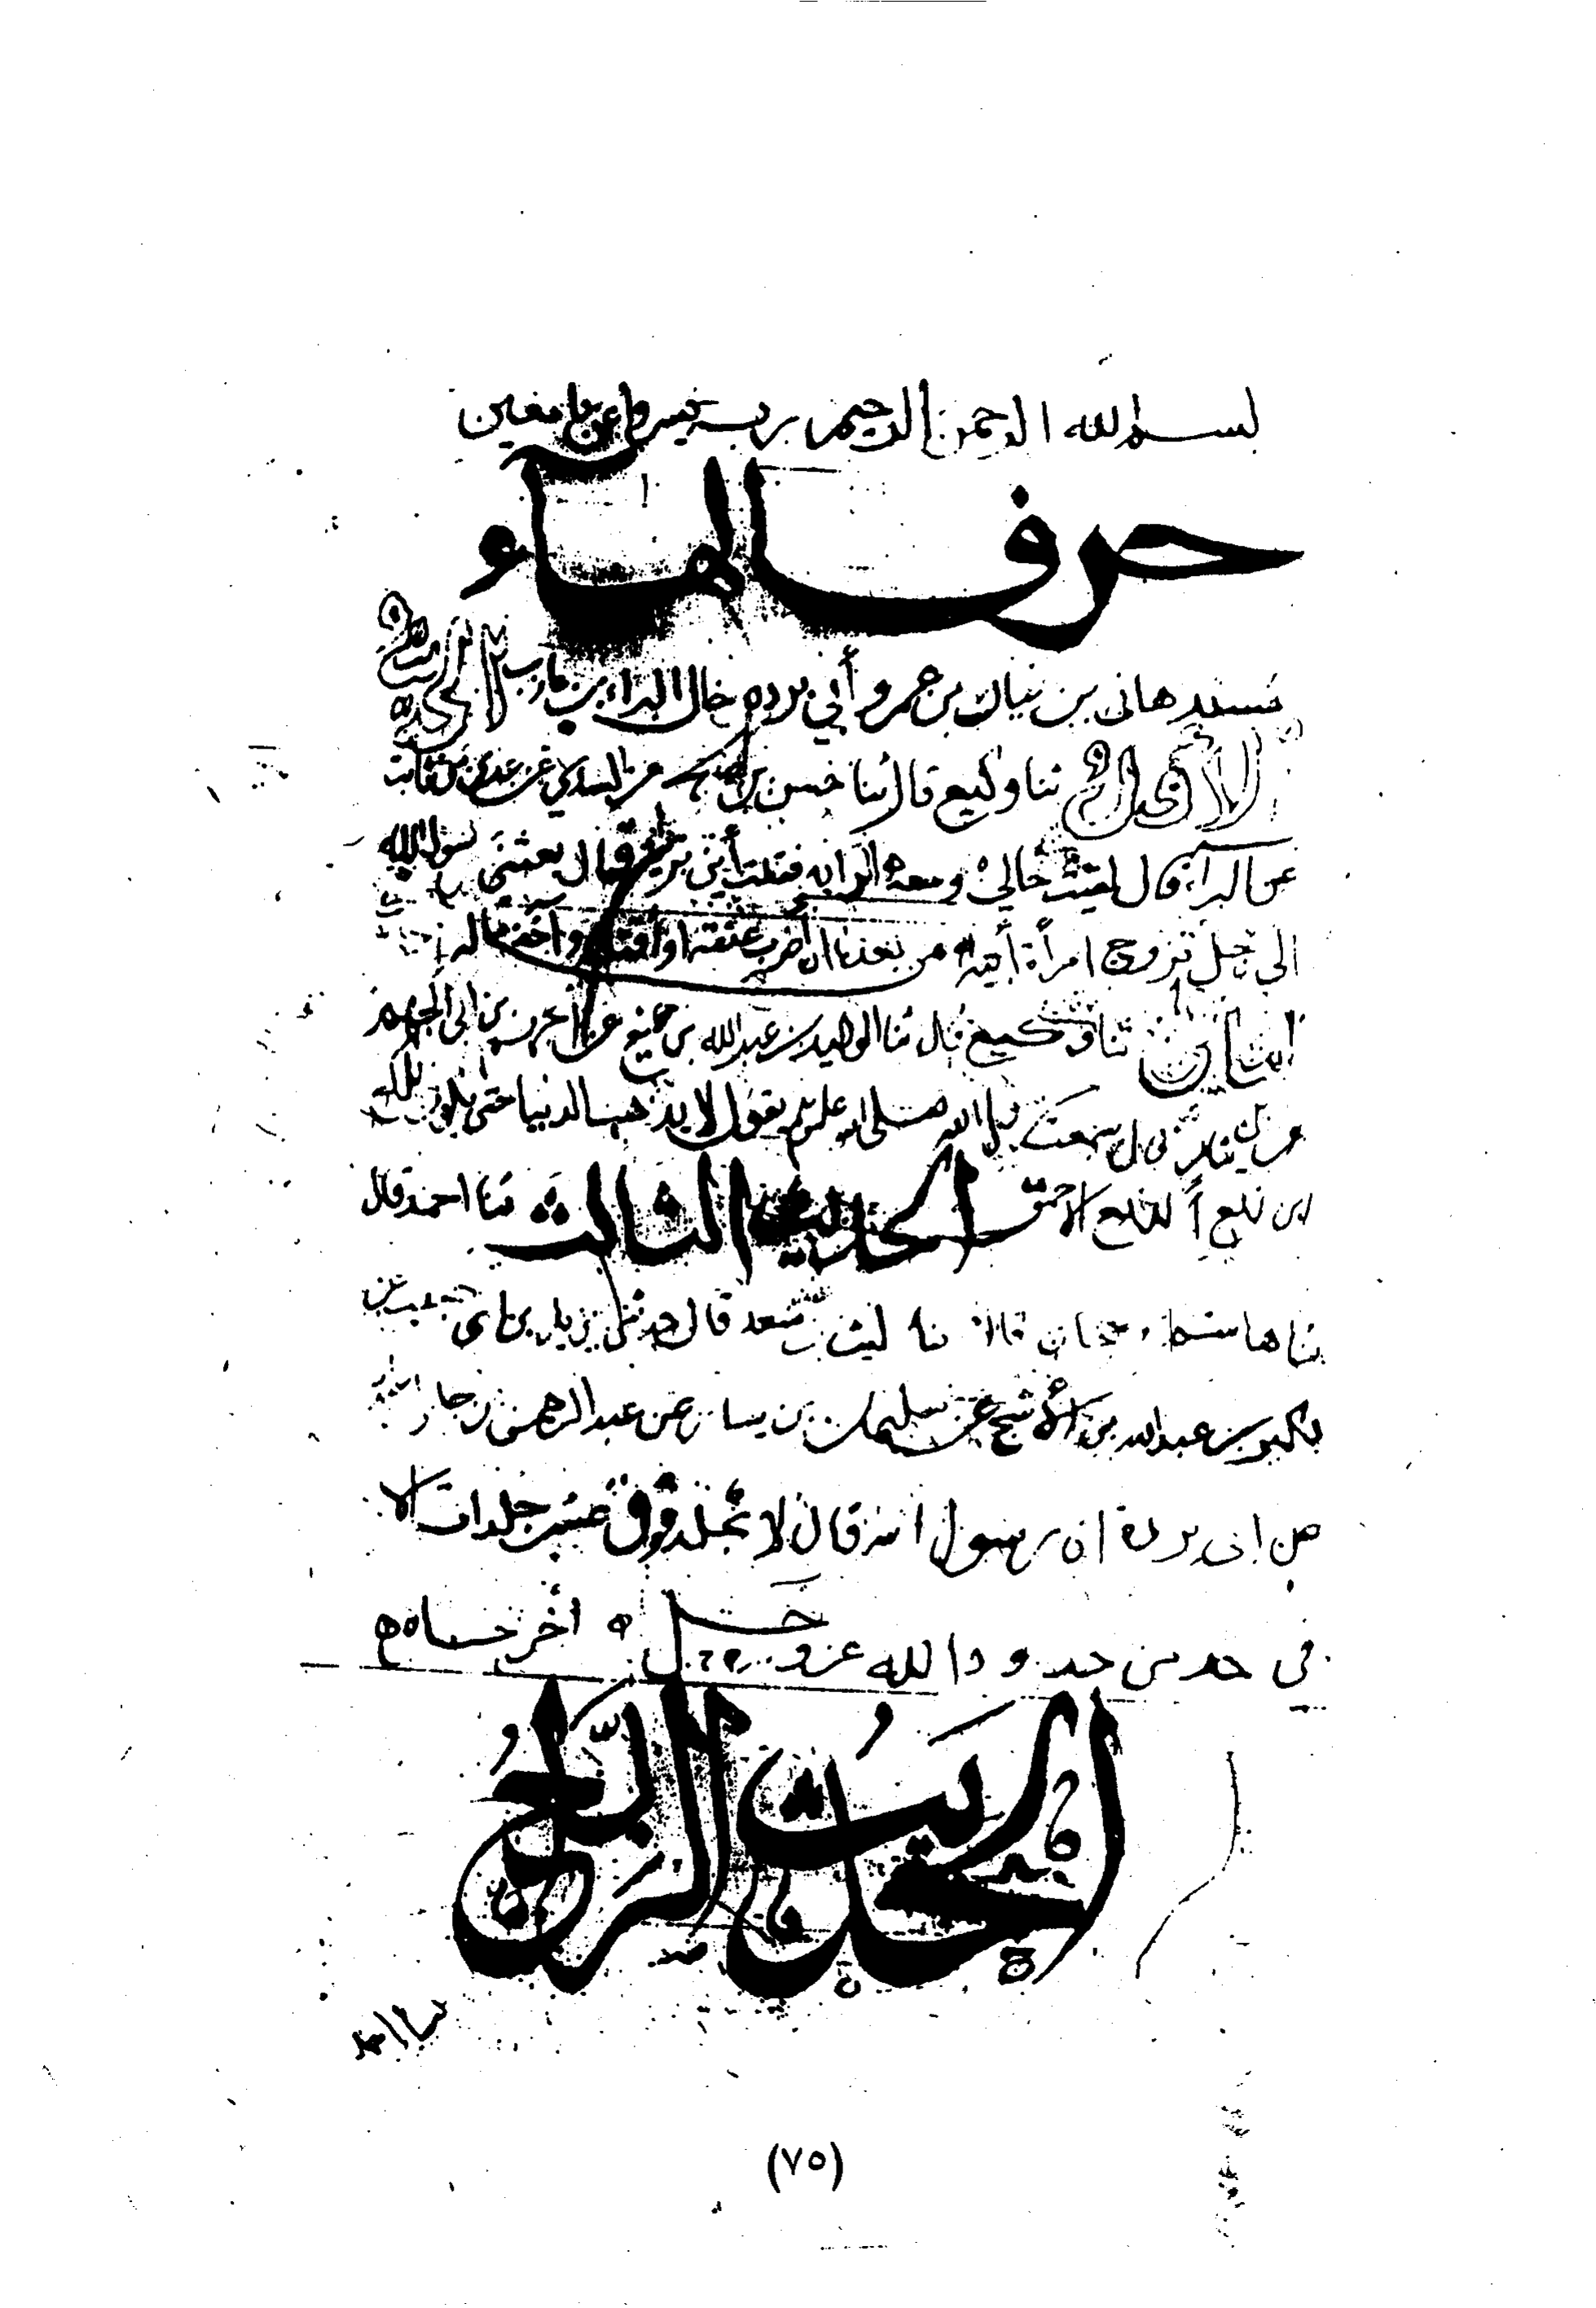 بسم الله الرحمن الرحيم رب يسر واعن يا معين
حرف الهاء
مسند هانى بن نيار بن عمرو أبي بردة خال البراء بن عازب الحديث
الأول ثنا وكيع قال ثنا حسن بن صالح عن السدي عن عدي بن ثابت
عن البراء قال لقيت خالي ومعه الراية فقلت أين تريد قال بعثني رسول الله
الى رجل تزوج امرأة أبيه من بعده ان أضرب عنقه او أقتله وآخذ ماله
الثاني ثنا وكيع قال ثنا الوليد بن عبد الله بن جميع عن ابن أبي الجهم
عن ابن نيار قال سمعت رسول الله صلى الله عليه وسلم يقول لا تذهب الدنيا حتى تكون للكع
ابن لكع الحديث الثالث ثنا احمد قال
ثنا هاشم وحجاج قالا ثنا ليث بن سعد قال حدثني يزيد بن ابى حبيب عن
بكير بن عبد الله بن الأشج عن سليمان بن يسار عن عبد الرحمن بن جابر
عن ابى بردة ان رسول الله قال لا تجلد فوق عشر جلدات الا
في حد من حدود الله عز وجل أخرجاه
الحديث الرابع
ثنا احمد
(٧٥)